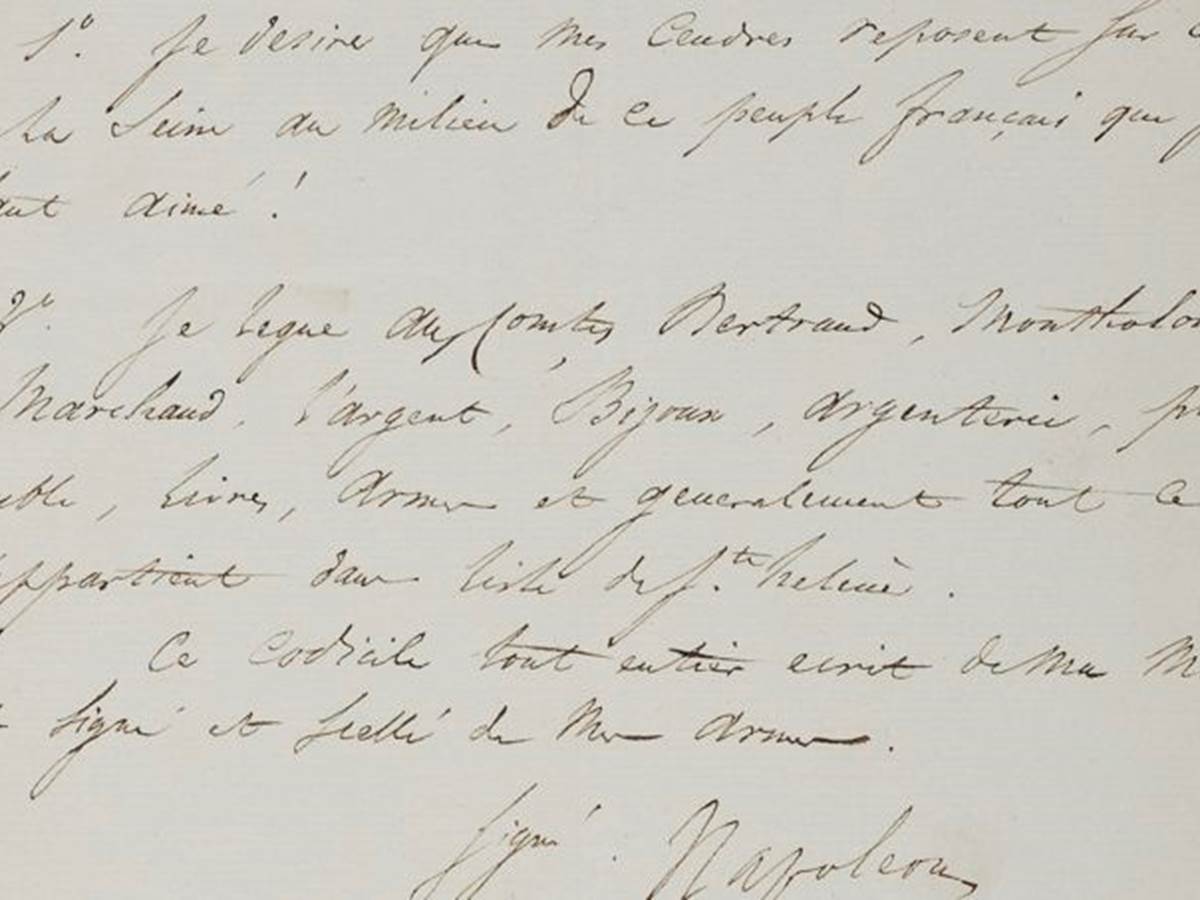 1º. Je desire que mes Cendres reposent sur
La Seine au milieu de ce peuple français que
aimé !
2º. Je legue aux Comtes Bertrand, Montholo
Marchand, l'argent, Bijoux, argenterie,
livres, armes et generalement tout ce
appartient dans liste de Ste helene.
Ce codicile tout entier ecrit de ma
signé et scellé de mes armes.
signé. Napoleon